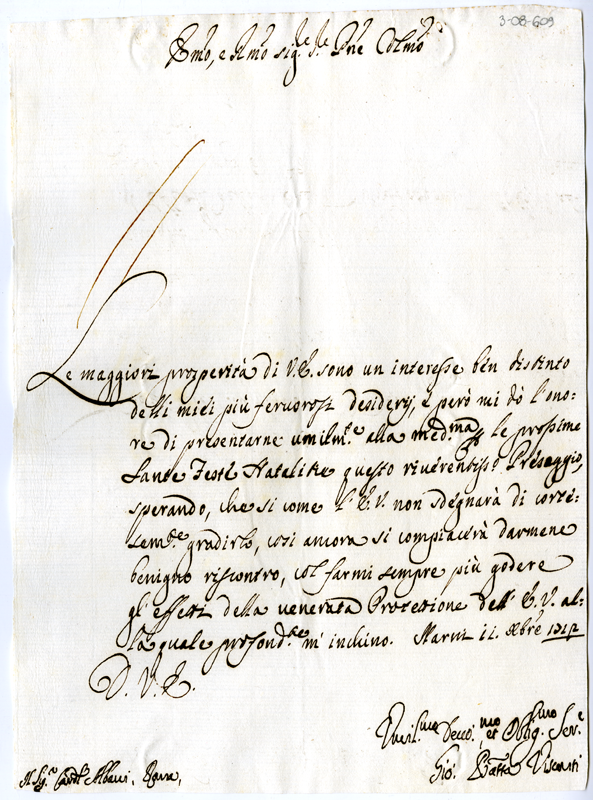 3-08-609
Emo, e Rmo Sig.e S.re Pne Colmo
Le maggiori prosperità di V.E. sono un interesse bén distinto
delli miei più feruorosi desiderij, e però mi dò l'ono-
re di presentarne umilm.te alla med.ma p le prossime
Sante Feste Natalitie questo riuérentiss.o Présaggio,
sperando, che si come l'E.V. non sdegnarà di corté-
sem.te gradirlo, cosi ancora si compiacerà darmene
benigno riscontro, col farmi sempre più godere
gl'effetti della venerata Protezione dell'E.V. al-
la quale profond.te m'inchino. Narni 11. Xbre 1712
D. V. E.
Vmil.mo Deuo.mo et Obblig.mo Ser.e
Gio. Batta Visconti
Al Sig.r Card.le Albani, Roma,